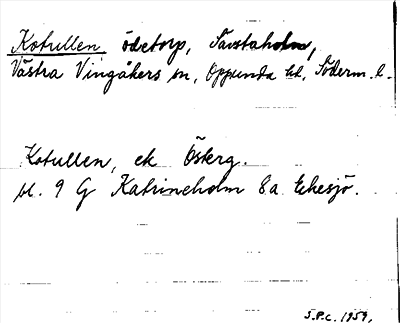 Kotullen ödetorp, Sävstaholm,
Västra Vingåkers sn, Oppunda hd, Söderm. l.
Kotullen, ek Österg.
bl. 9 G Katrineholm 8a Ekesjö.
S.P.C. 1959.